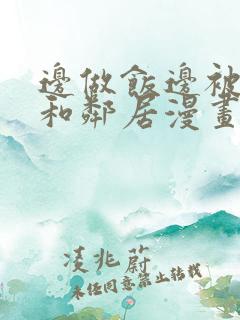 邊做飯邊被
和鄰居漫畫
凌兆蔚
未经同意禁止转载